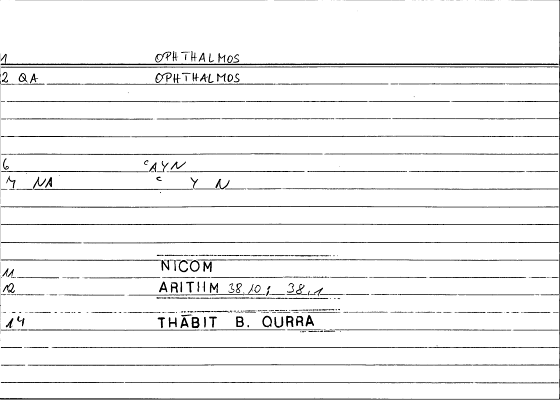 1 OPHTHALMOS
2 QA OPHTHALMOS
6 ᶜAYN
7 NA ᶜ Y N
11 NICOM
12 ARITHM 38.10; 38.1
14 THĀBIT B. QURRA